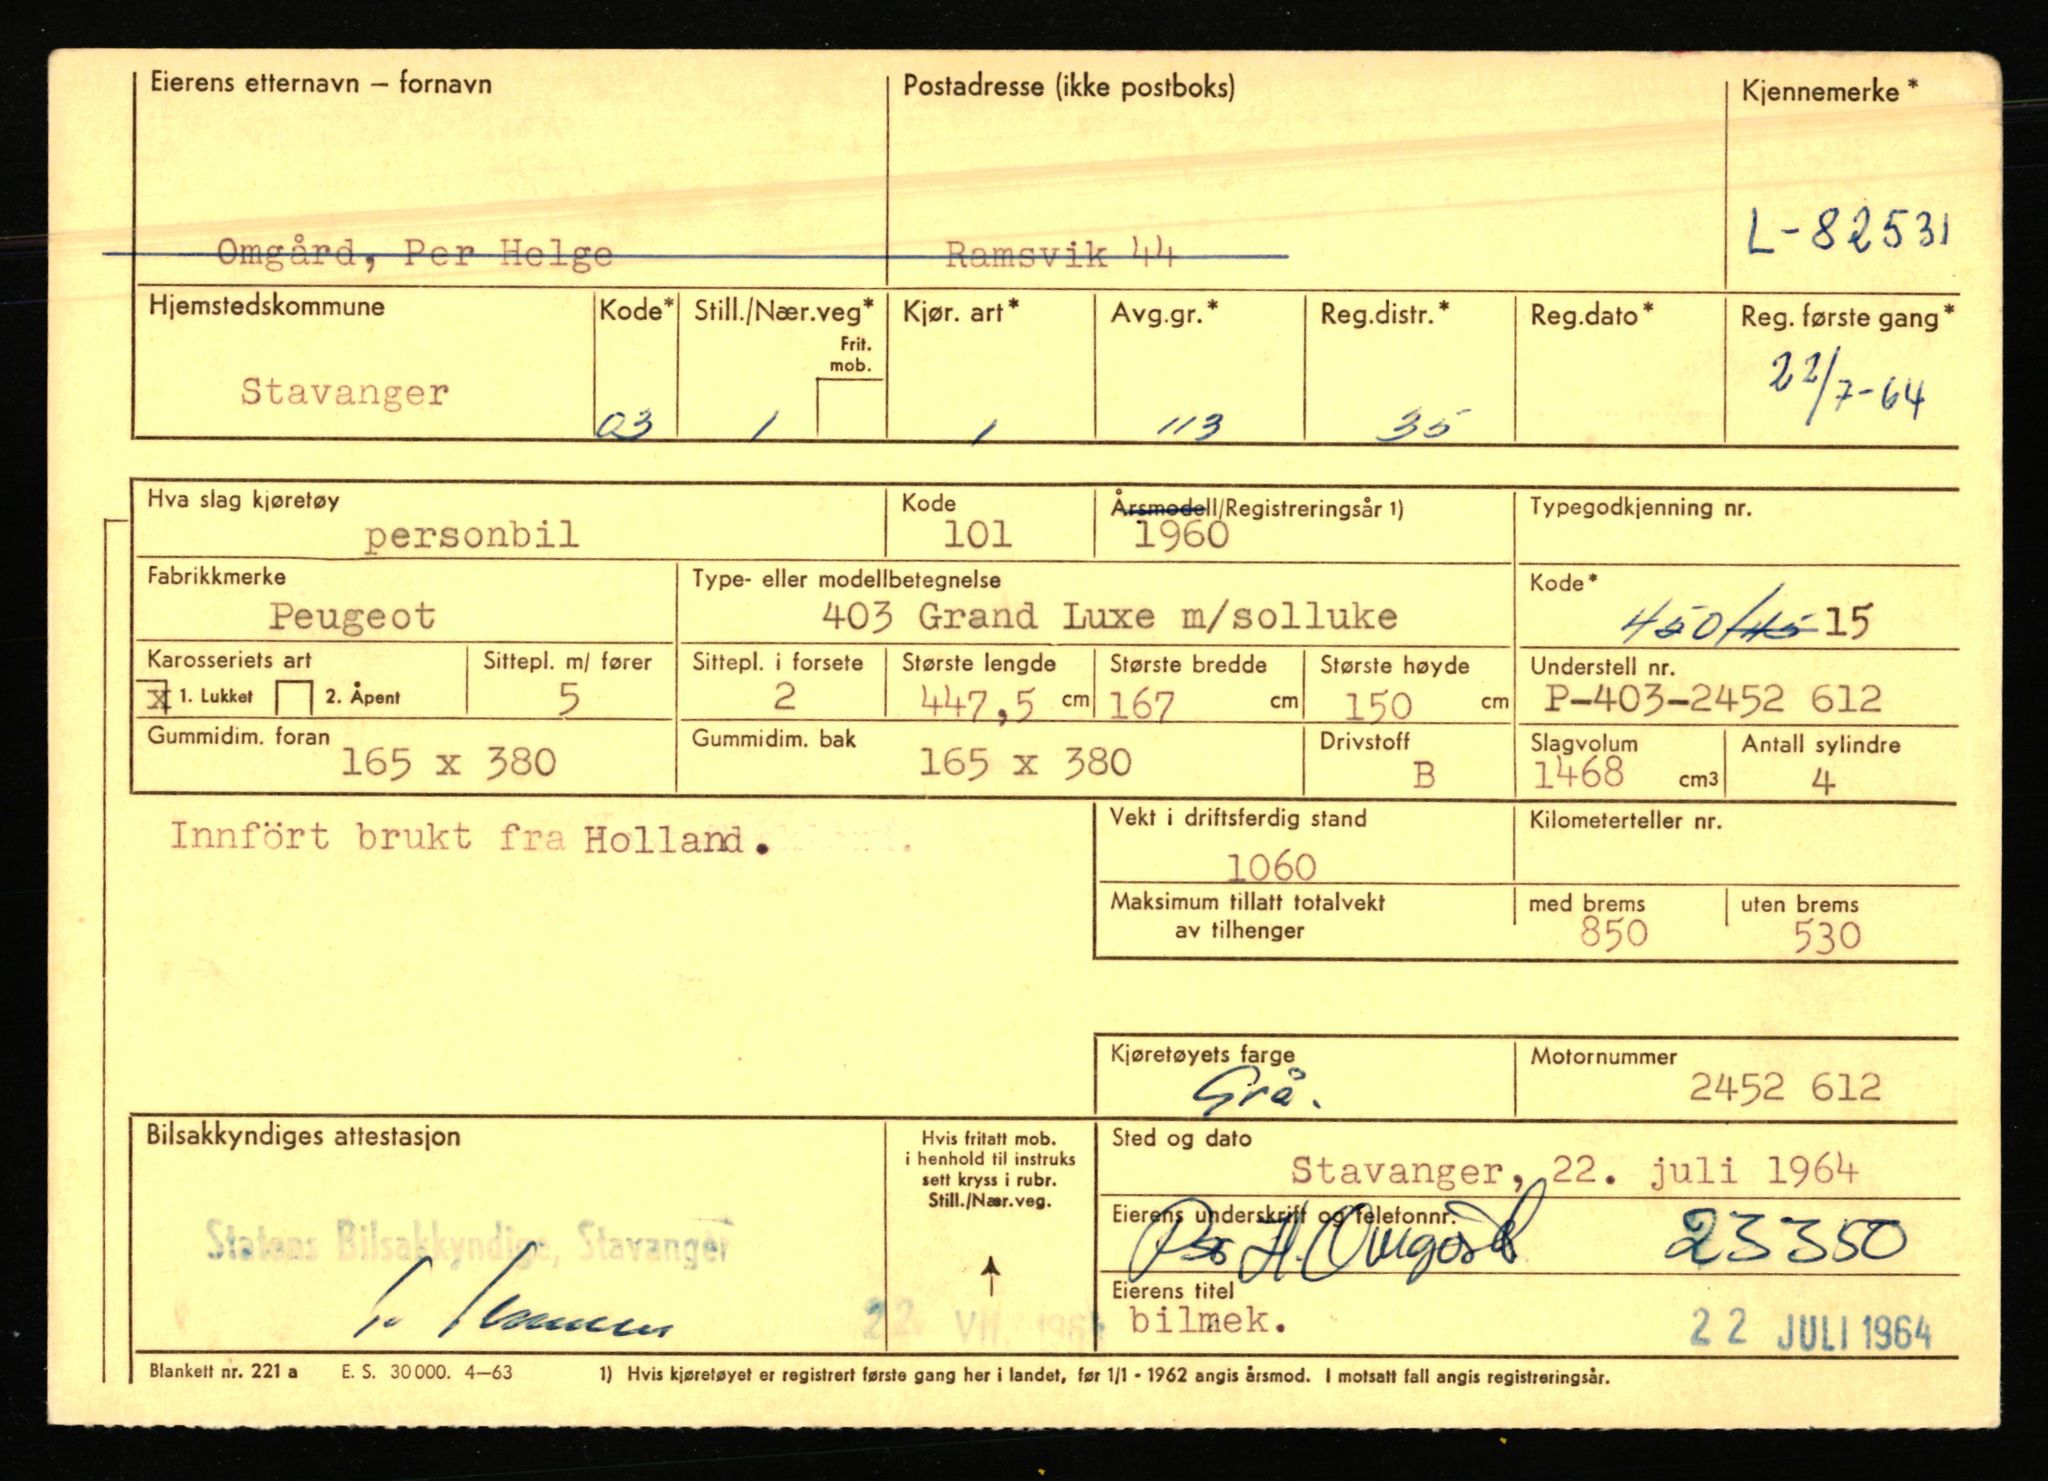 Eierens etternavn – fornavn Postadresse (ikke postboks) Kjennemerke*
Omgård, Per Helge Ramsvik 44 L-82531
Hjemstedskommune Kode* Still./Nær.veg* Kjør. art* Avg.gr.* Reg.distr.* Reg.dato* Reg. første gang*
Frit.
mob.
Stavanger 03 1 1 113 35 22/7-64
Hva slag kjøretøy Kode Årsmodell/Registreringsår 1) Typegodkjenning nr.
personbil 101 1960
Fabrikkmerke Type- eller modellbetegnelse Kode*
Peugeot 403 Grand Luxe m/solluke 450/45 15
Karosseriets art Sittepl. m/ fører Sittepl. i forsete Største lengde Største bredde Største høyde Understell nr.
x 1. Lukket 2. Åpent 5 2 447,5 cm 167 cm 150 cm P-403-2452 612
Gummidim. foran Gummidim. bak Drivstoff Slagvolum Antall sylindre
165 x 380 165 x 380 B 1468 cm3 4
Innfört brukt fra Holland.
Vekt i driftsferdig stand Kilometerteller nr.
1060
Maksimum tillatt totalvekt med brems uten brems
av tilhenger 850 530
Kjøretøyets farge Motornummer
Grå. 2452 612
Bilsakkyndiges attestasjon Hvis fritatt mob.
i henhold til instruks
sett kryss i rubr.
Still./Nær.veg.
Sted og dato
Stavanger, 22. juli 1964
Eierens underskrift og telefonnr.
Per H. Omgård 23350
Statens Bilsakkyndige, Stavanger
22 VII. 1964
Eierens titel
bilmek. 22 JULI 1964
Blankett nr. 221 a E. S. 30 000. 4–63 1) Hvis kjøretøyet er registrert første gang her i landet, før 1/1 - 1962 angis årsmod. I motsatt fall angis registreringsår.